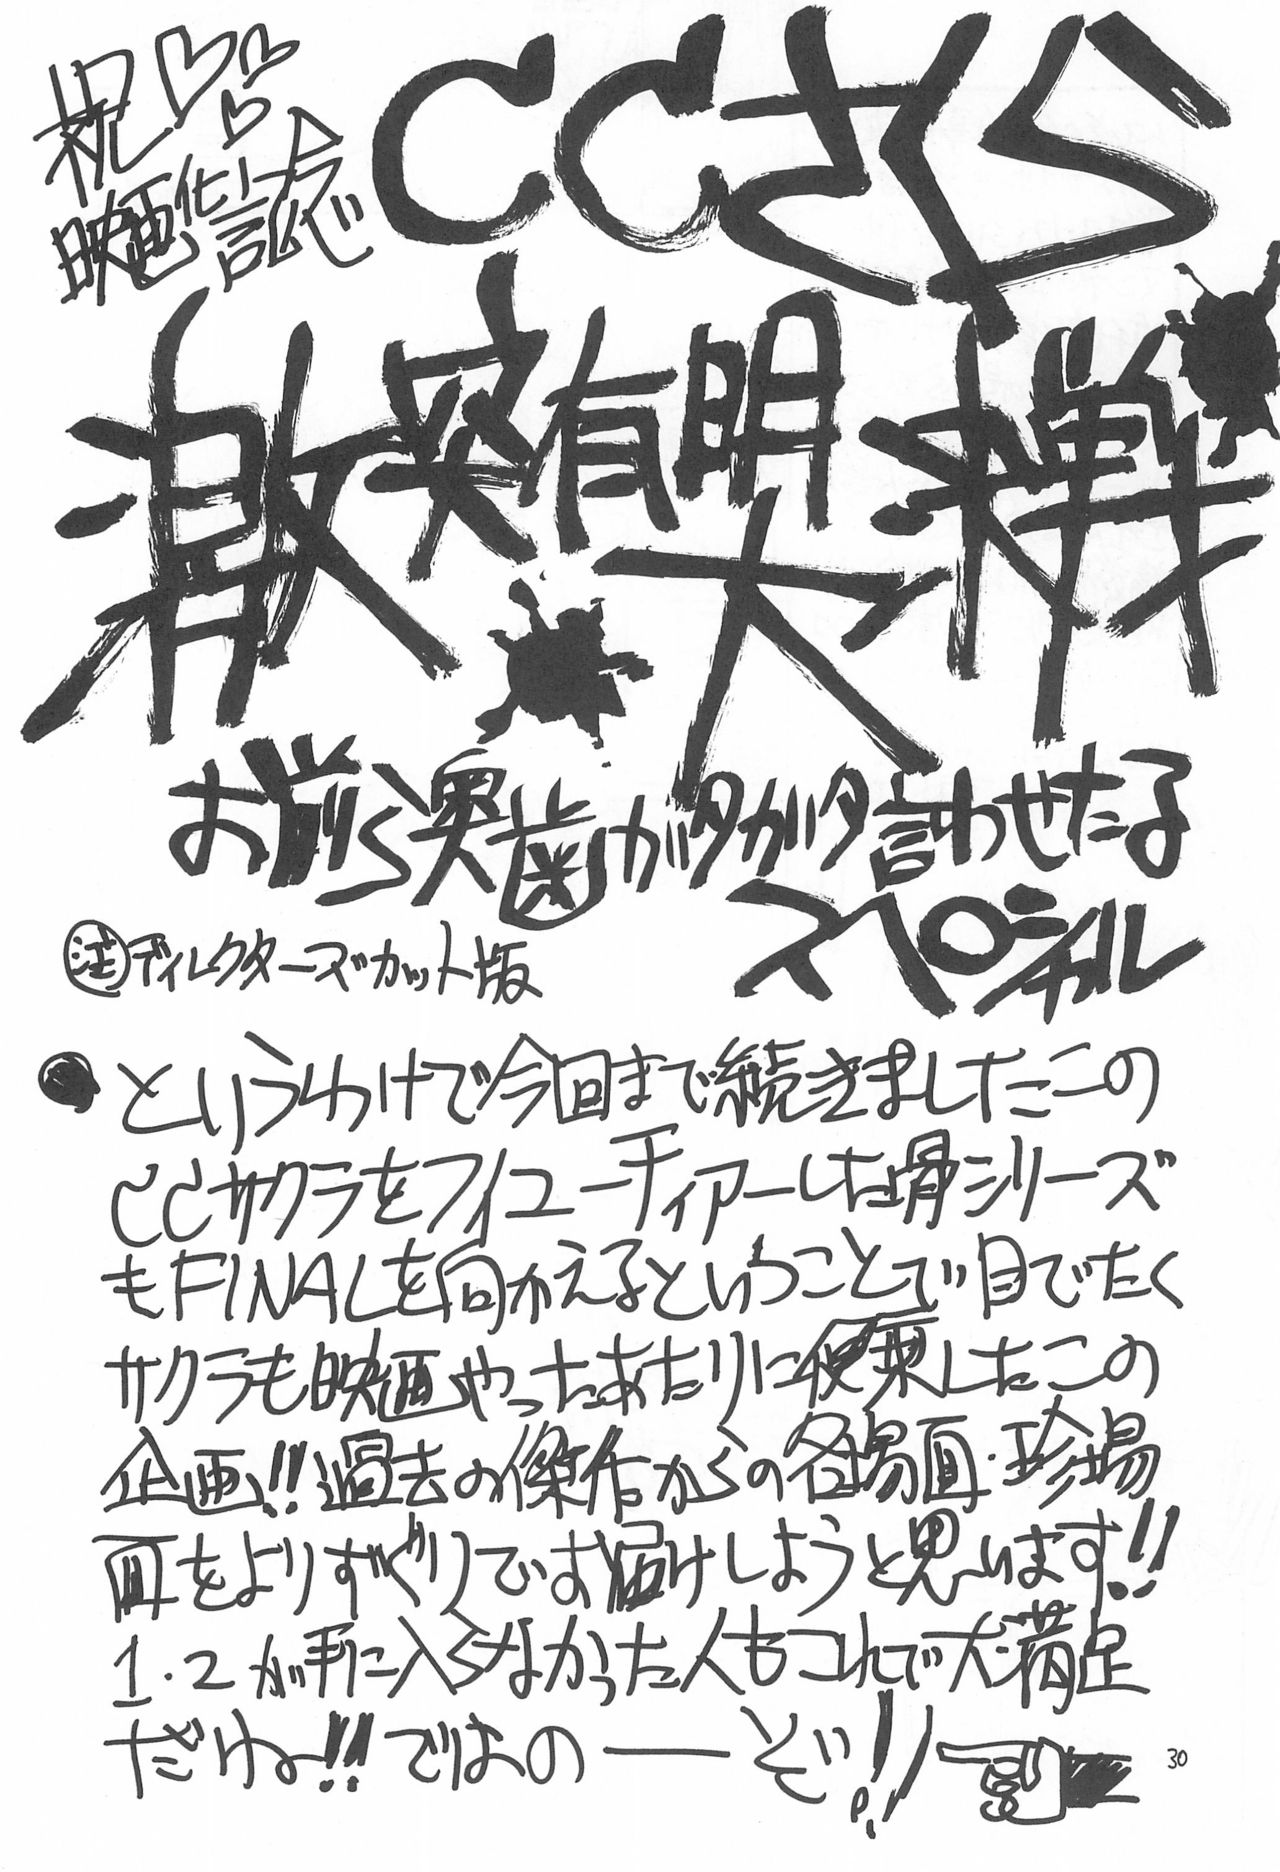 祝♡♡♡
映画化記念で
CCさくら
激突有明
大決戦
お前ら奥歯ガタガタ言わせたる
スペシャル
注 ディレクターズカット版
●というわけで今回まで続きましたこの
CCサクラをフィーューチャーした シリーズ
もFINALを向かえるということで目でたく
サクラも映画やったあたりに便乗したこの
企画!!過去の傑作からの名場面・珍場
面をよりすぐりでお届けしようと思います!!
1.2が手に入らなかった人もコれで大満足
だわね!!ではの——ぞい!!
30